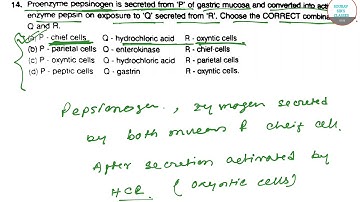 14. Proenzyme pepsinogen is secreted from 'P' of gastric mucosa and converted into acti
enzyme pepsin on exposure to 'Q' secreted from 'R'. Choose the CORRECT combina
Q and R.
(a) P - chief cells Q - hydrochloric acid R - oxyntic cells
(b) P - parietal cells Q - enterokinase R - chief-cells
(c) P - oxyntic cells Q - hydrochloric acid R - parietal cells
(d) P - peptic cells Q - gastrin R - oxyntic cells.
Pepsionogen , zymogen secreted
by both mucous & cheif cell.
After secretion activated by
HCl (oxyontic cells)